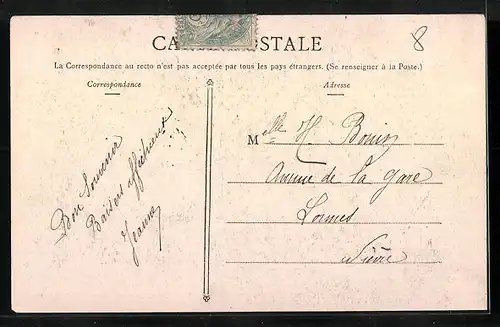 CARTE POSTALE
8
La Correspondance au recto n'est pas acceptée par tous les pays étrangers. (Se renseigner à la Poste.)
Correspondance
Adresse
Bon Souvenir
Baisers affectueux
Jeanne
Mlle H.
Avenue de la gare
Lormes
Nièvre